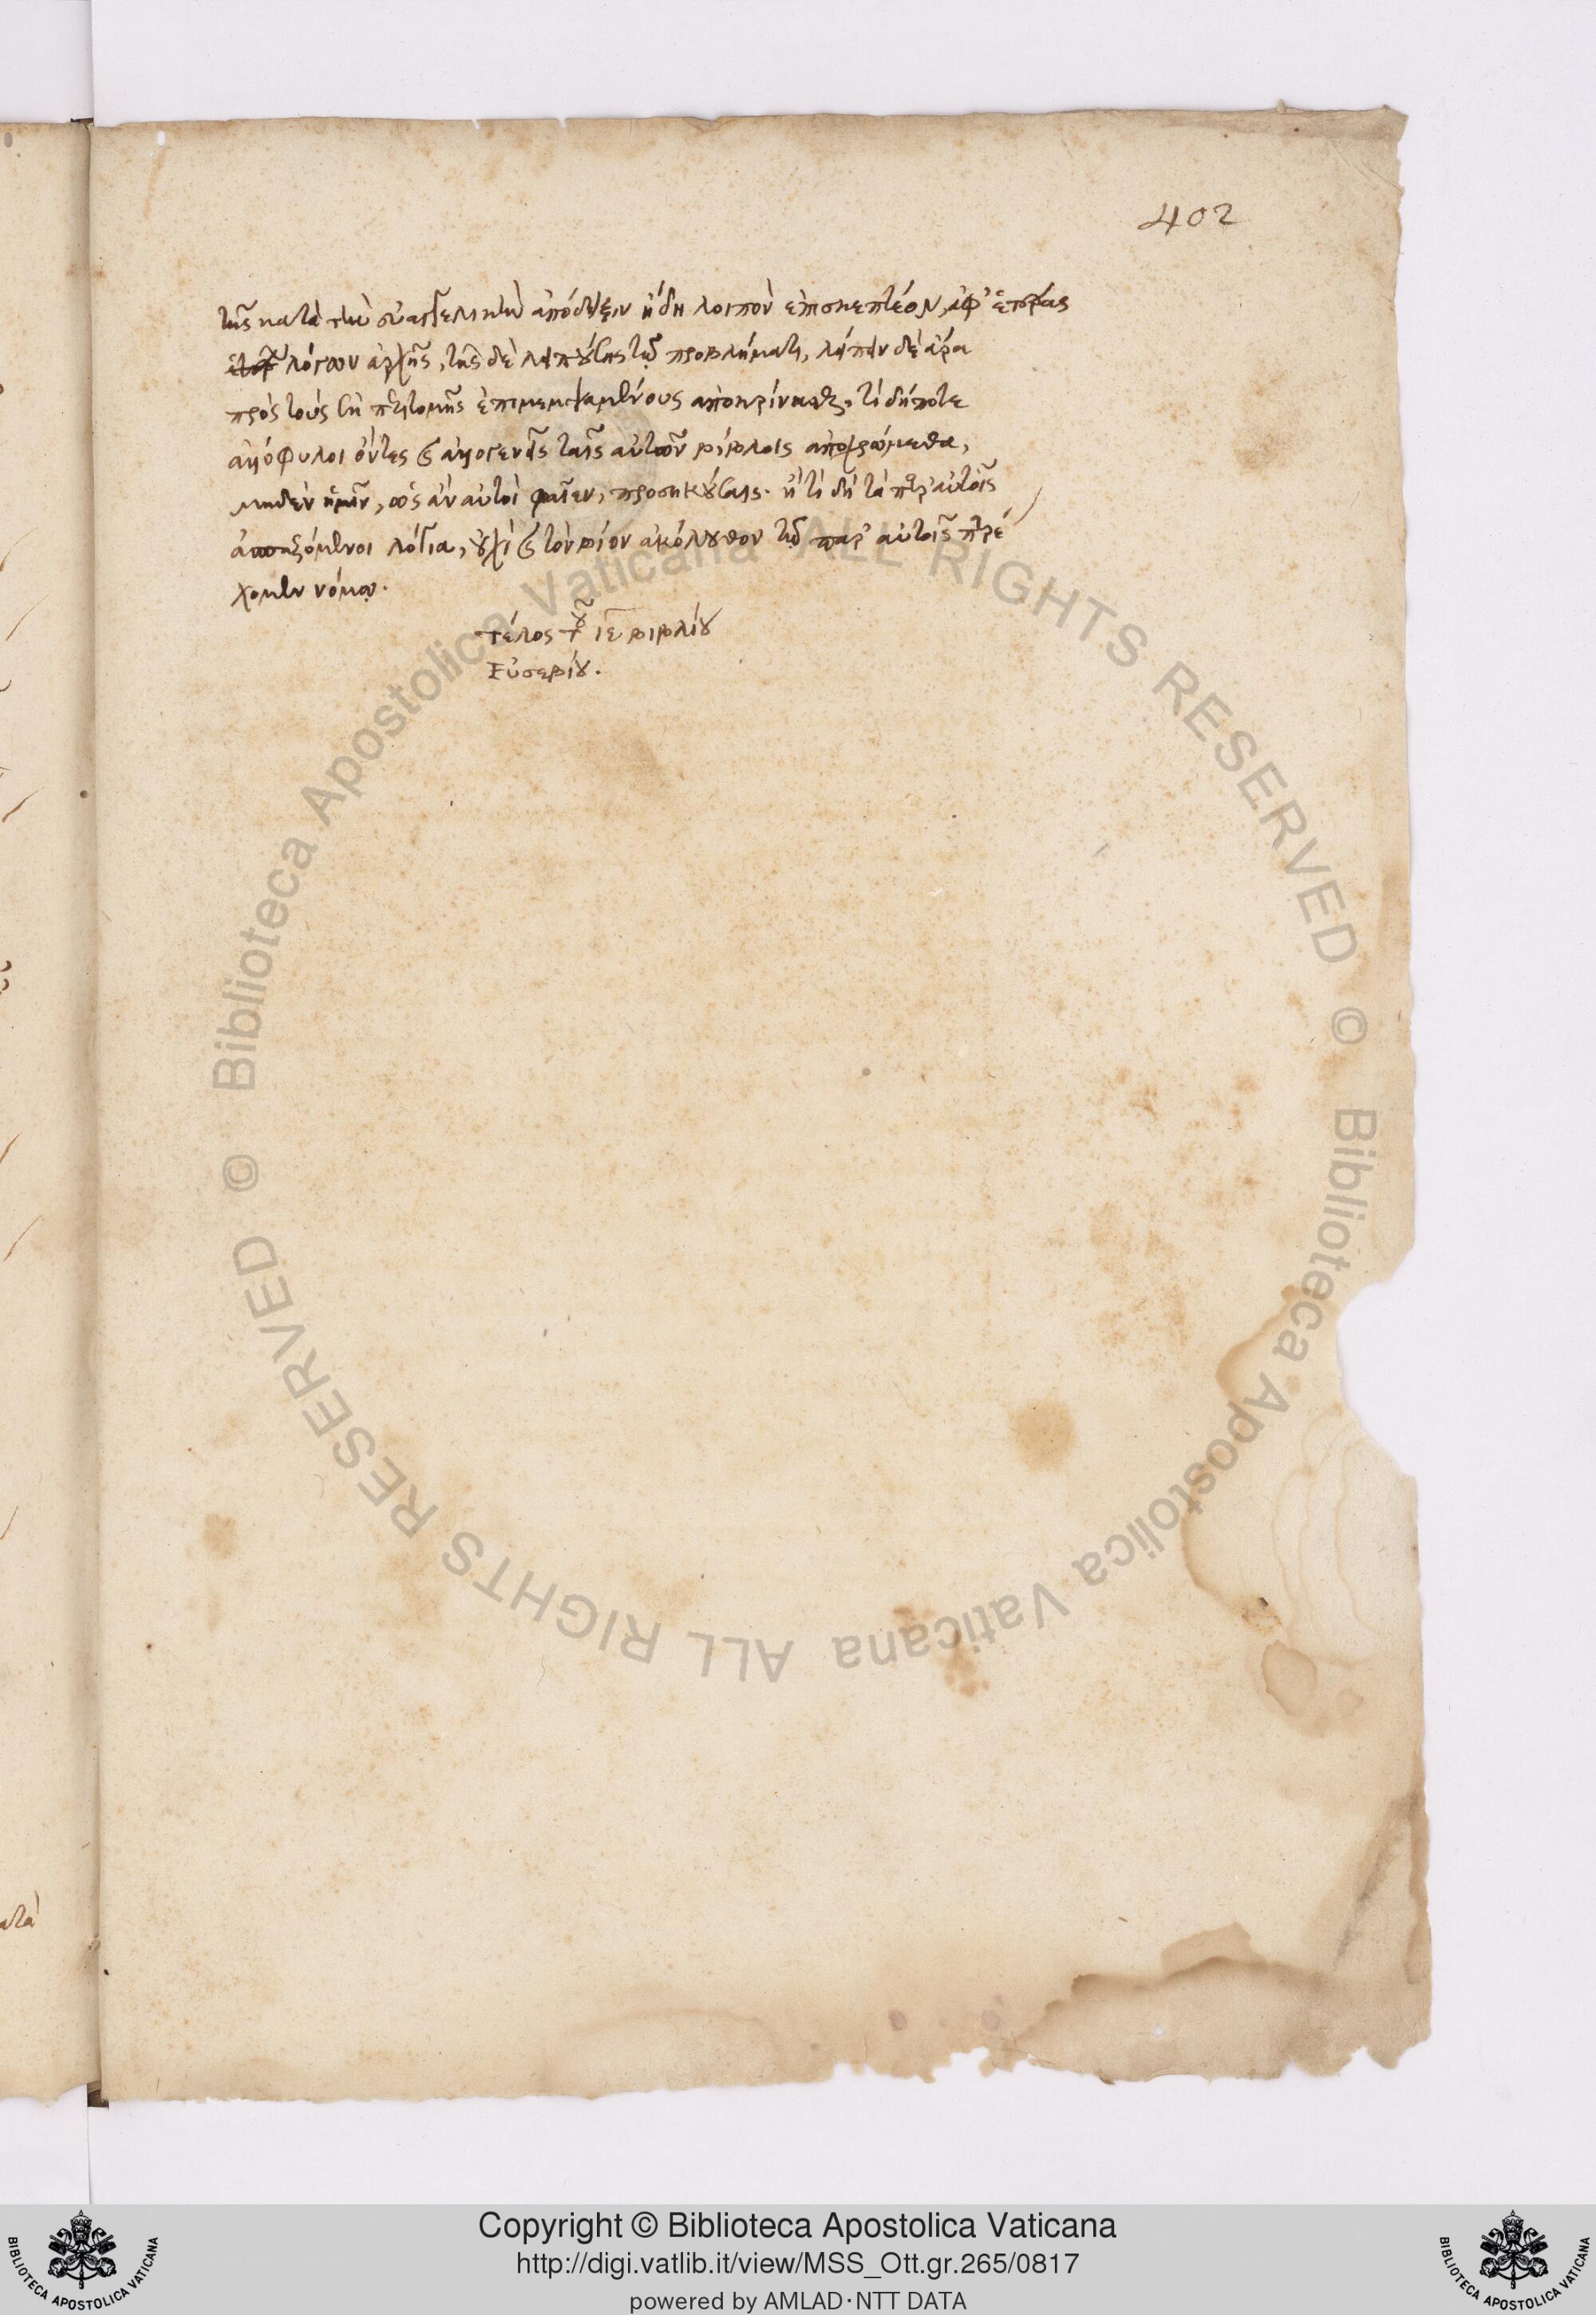 402
τῆς κατὰ τὴν εὐαγγελικὴν ἀπόδειξιν ἤδη λοιπὸν ἐπισκεπτέον, ἀφ' ἑτέρας
λόγων ἀρχῆς, τῆς δὲ λειπούσης τῷ προβλήματι, λείπειν δὲ ἄρα
πρὸς τοὺς ἐκ περιτομῆς ἐπιμεμψαμένους ἀποκρίνασθαι. τί δήποτε
ἀλλόφυλοι ὄντες καὶ ἀλλογενεῖς ταῖς αὐτῶν βίβλοις ἀποχρώμεθα,
μηδὲν ἡμῖν, ὡς ἂν αὐτοὶ φαῖεν, προσηκούσαις. ἢ τί δὴ τὰ παρ' αὐτοῖς
ἀσπαζόμενοι λόγια, οὐχὶ καὶ τὸν βίον ἀκόλουθον τῷ παρ' αὐτοῖς παρέ
χομεν νόμῳ.
τέλος τοῦ ιε βιβλίου
Εὐσεβίου.
ατὰ
© Biblioteca Apostolica Vaticana ALL RIGHTS RESERVED © Biblioteca Apostolica Vaticana ALL RIGHTS RESERVED
Copyright © Biblioteca Apostolica Vaticana
http://digi.vatlib.it/view/MSS_Ott.gr.265/0817
powered by AMLAD·NTT DATA
BIBLIOTECA APOSTOLICA VATICANA
BIBLIOTECA APOSTOLICA VATICANA